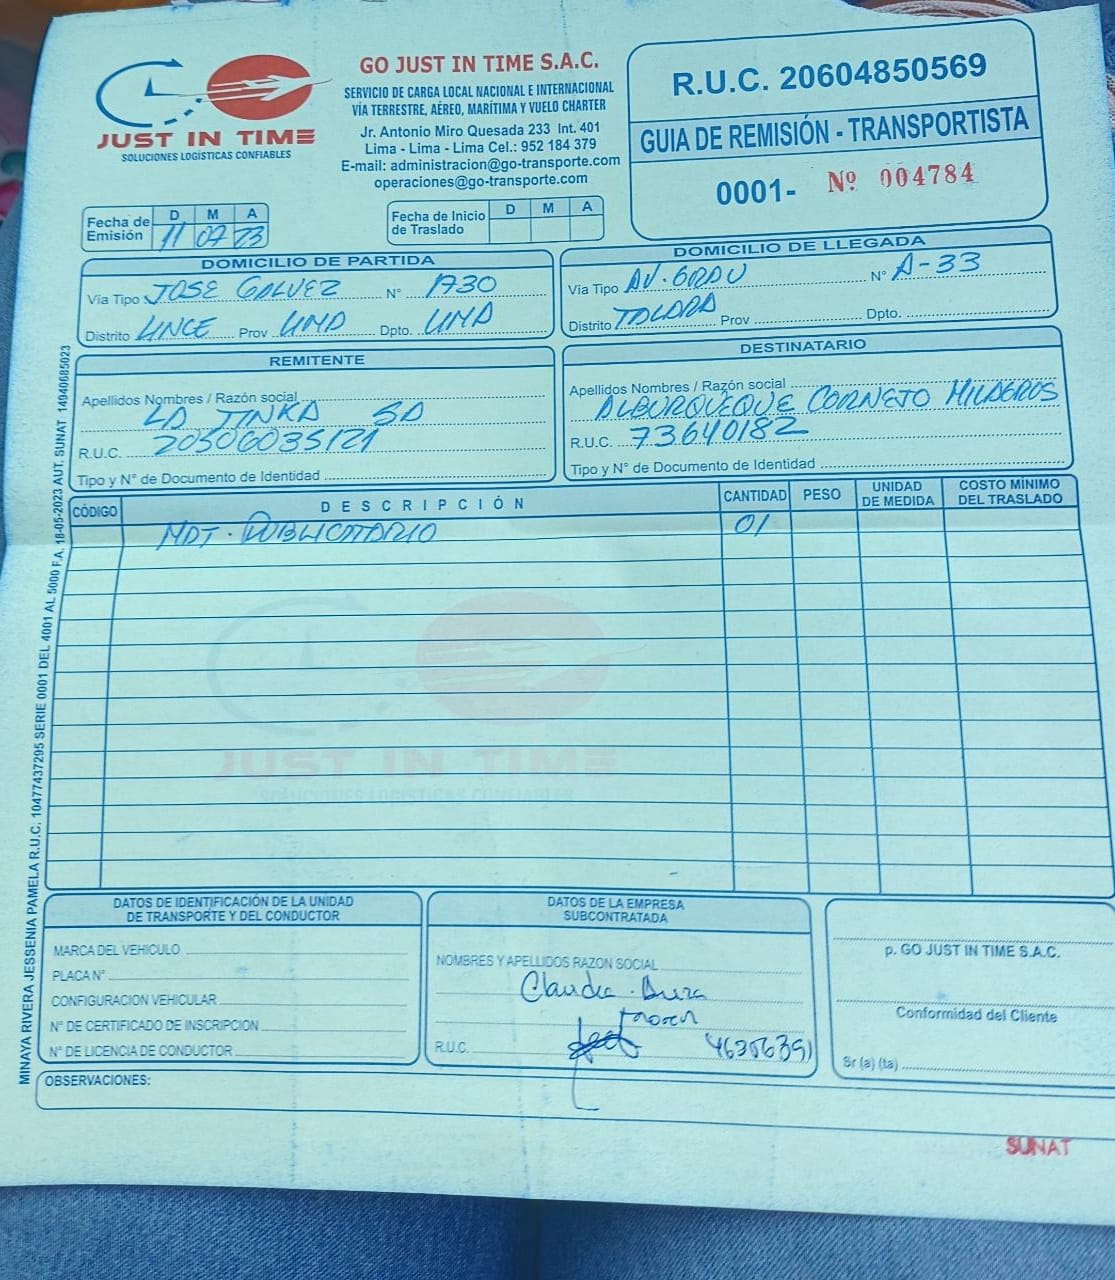 JUST IN TIME
SOLUCIONES LOGÍSTICAS CONFIABLES
GO JUST IN TIME S.A.C.
SERVICIO DE CARGA LOCAL NACIONAL E INTERNACIONAL
VÍA TERRESTRE, AÉREO, MARÍTIMA Y VUELO CHARTER
Jr. Antonio Miro Quesada 233 Int. 401
Lima - Lima - Lima Cel.: 952 184 379
E-mail: administracion@go-transporte.com
operaciones@go-transporte.com
R.U.C. 20604850569
GUIA DE REMISIÓN - TRANSPORTISTA
0001- Nº 004784
Fecha de Emisión D M A
11 07 23
Fecha de Inicio de Traslado D M A
DOMICILIO DE PARTIDA
Vía Tipo JOSE GALVEZ N° 1730
Distrito LINCE Prov LIMA Dpto. LIMA
DOMICILIO DE LLEGADA
Vía Tipo AV. GRAU N° A-33
Distrito TALARA Prov Dpto.
REMITENTE
Apellidos Nombres / Razón social
LA TINKA SA
R.U.C. 20506035121
Tipo y N° de Documento de Identidad
DESTINATARIO
Apellidos Nombres / Razón social
ALBURQUEQUE CORNEJO MILAGROS
R.U.C. 73640182
Tipo y N° de Documento de Identidad
CÓDIGO DESCRIPCIÓN CANTIDAD PESO UNIDAD DE MEDIDA COSTO MÍNIMO DEL TRASLADO
MAT. PUBLICITARIO 01
JUST IN TIME
SOLUCIONES LOGÍSTICAS CONFIABLES
MINAYA RIVERA JESSENIA PAMELA R.U.C. 10477437295 SERIE 0001 DEL 4001 AL 5000 F.A. 18-05-2023 AUT. SUNAT 14940685023
DATOS DE IDENTIFICACIÓN DE LA UNIDAD
DE TRANSPORTE Y DEL CONDUCTOR
MARCA DEL VEHICULO
PLACA N°
CONFIGURACION VEHICULAR
N° DE CERTIFICADO DE INSCRIPCION
N° DE LICENCIA DE CONDUCTOR
DATOS DE LA EMPRESA
SUBCONTRATADA
NOMBRES Y APELLIDOS RAZON SOCIAL
Claudia
R.U.C. 46306391
p. GO JUST IN TIME S.A.C.
Conformidad del Cliente
Sr (a) (ta)
OBSERVACIONES:
SUNAT